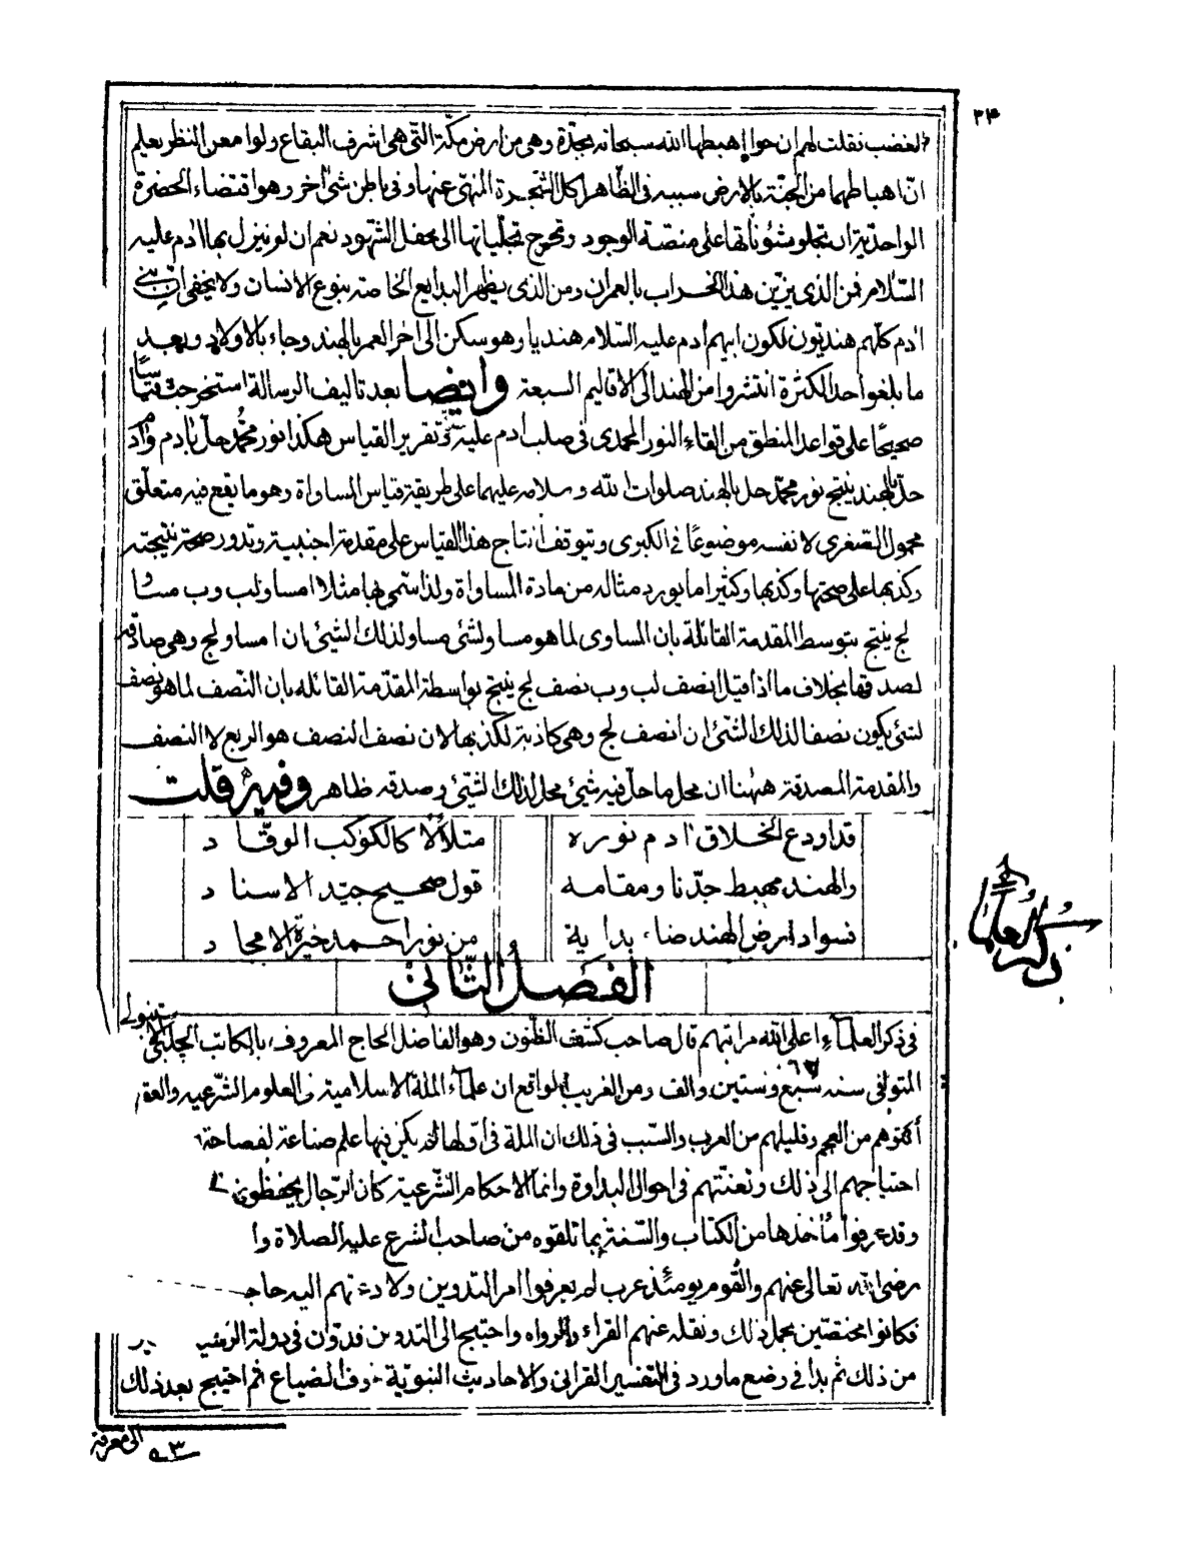 ۲۴
الغضب فقلت لهم ان حوا إهبطها الله سبحانه بجدّة وهى من ارض مكّة التى هى اشرف البقاع ولو امعن النظر يعلم
انّ اهباطهما من الجنّة بالارض سببه فى الظّاهر اكل الشّجرة المنهىّ عنها وفى باطن شئ اخر وهو اقتضاء الحضرة
الواحديّة ان تجلو شئوناتها على منصّة الوجود وتخرج تجلّياتها الى محفل الشهود نعم ان لو ينزل بها ادم عليه
السّلام فمن الذى يزيّن هذا الخراب بالعمران ومن الذى يظهر البدايع الخاصة بنوع الانسان ولا يخفى ان بنى
ادم كلّهم هنديّون لكون ابيهم ادم عليه السّلام هنديا وهو سكن الى اخر العمر بالهند وجاء بالاولاد وبعد
ما بلغوا حد الكثرة انتشروا من الهند الى الاقاليم السبعة وايضا بعد تاليف الرسالة استخرجت قياسًا
صحيحًا على قواعد المنطق من القاء النور المحمدى فى صلب ادم عليه تقرير القياس هكذا نور محمّد حلّ بادم وادم
حلّ بالهند ينتج نور محمّد حل بالهند صلوات الله وسلامه عليهما على طريقة قياس المساواة وهو ما يقع فيه متعلّق
محمول الصّغرى لا نفسه موضوعًا فى الكبرى ويتوقف انتاج هذا القياس على مقدمة اجنبية وتدور صحة نتيجته
وكذبها على صحتها وكذبها وكثيرا ما يورد مثاله من مادة المساواة ولذا سمّى بها مثلا ا مساو لب وب مساو
لج ينتج بتوسط المقدمة القائلة بان المساوى لما هو مساو لشئ مساو لذلك الشئ ان ا مساو لج وهى صادقة
لصدقها بخلاف ما اذا قيل ا نصف لب وب نصف لج ينتج بواسطة المقدّمة القائله بان النّصف لما هو نصف
لشئ يكون نصفا لذلك الشئ ان ا نصف لج وهى كاذبة لكذبها لان نصف النصف هو الربع لا النصف
والمقدمة المصدقة ههنا ان محل ما حلّ فيه شئ محل لذلك الشئ وصدقه ظاهر وفيه قلت
قد اودع الخلاق ادم نوره متلألأ كالكوكب الوقّاد
والهند مهبط جدّنا ومقامه قول صحيح جيّد الاسناد
فسواد ارض الهند ضاء بداية من نور احمد خيرة الامجاد
ذكر العلماء
الفصل الثّانى
فى ذكر العلماء اعلى الله مراتبهم قال صاحب كشف الظّنون وهو الفاضل الحاج المعروف بالكاتب الچلبى
المتوفى سنه سبع وستين والف ومن الغريب الواقع ان علماء الملة الاسلامية فى العلوم الشّرعيه والعق
أكثرهم من العجم وقليلهم من العرب والسّبب فى ذلك ان الملة فى اولها لم يكن فيها علم صناعة لفصاحة
احتياجهم الى ذلك ونعنّتهم فى احوال البداوة وانما الاحكام الشّرعية كان الرّجال يحفظون
وقد عرفوا مأخذها من الكتاب والسّنة بما تلقوه من صاحب الشرع عليه الصلاة وا
رضى الله تعالى عنهم والقوم يومئذ عرب لم يعرفوا امر التدوين ولا دعتهم اليه حاجـ
فكانوا مختصّين بجمل ذلك ونقله عنهم القراء والرواه واحتيج الى التدوين فدوّن فى دولة الرشيد
من ذلك ثم بدا فى وضع ما ورد فى التفسير القرانى والاحاديث النبويّة خوف الضياع ثم احتيج بعد ذلك
الى معرفة